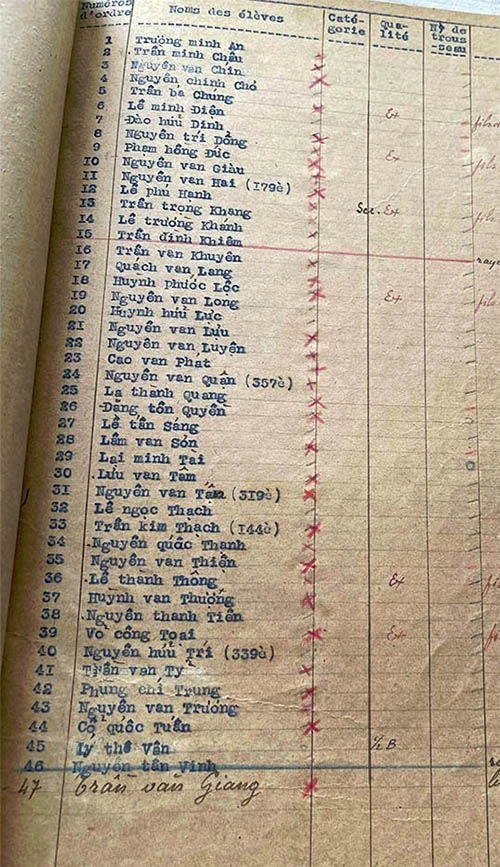 Numéros d'ordre Noms des élèves Caté-gorie Qua-lité Nº de trous-seau
1 Trương minh An
2 Trần minh Châu
3 Nguyễn van Chín
4 Nguyễn chinh Chỏ
5 Trần bá Chúng
6 Lê minh Điện
7 Đào hữu Dinh Ex
8 Nguyễn trí Dồng
9 Phạm hồng Đức Ex
10 Nguyễn van Giàu
11 Nguyễn van Hai (179è)
12 Lê phú Hạnh
13 Trần trọng Khang Sec. Ex
14 Lê trương Khánh
15 Trần đình Khiêm
16 Trần van Khuyên
17 Quách van Lang
18 Huỳnh phước Lộc
19 Nguyễn van Long Ex
20 Huỳnh hữu Lực
21 Nguyễn van Lưu
22 Nguyễn van Luyện
23 Cao van Phát
24 Nguyễn van Quân (357è)
25 La thanh Quang
26 Đăng tôn Quyền
27 Lê tấn Sáng
28 Lâm van Són
29 Lại minh Tài
30 Lưu van Tâm
31 Nguyễn van Tấn (319è)
32 Lê ngọc Thạch
33 Trần kim Thạch (144è)
34 Nguyễn quốc Thạnh
35 Nguyễn van Thiện
36 Lê thành Thông Ex
37 Huỳnh van Thượng
38 Nguyễn thanh Tiên
39 Võ công Toại Ex
40 Nguyễn hữu Trí (339è)
41 Trần van Tỷ
42 Phùng chí Trung
43 Nguyễn van Trương
44 Cổ quốc Tuấn
45 Lý thế Vân ½ B
46 Nguyễn tấn Vinh
47 Trần văn Giang